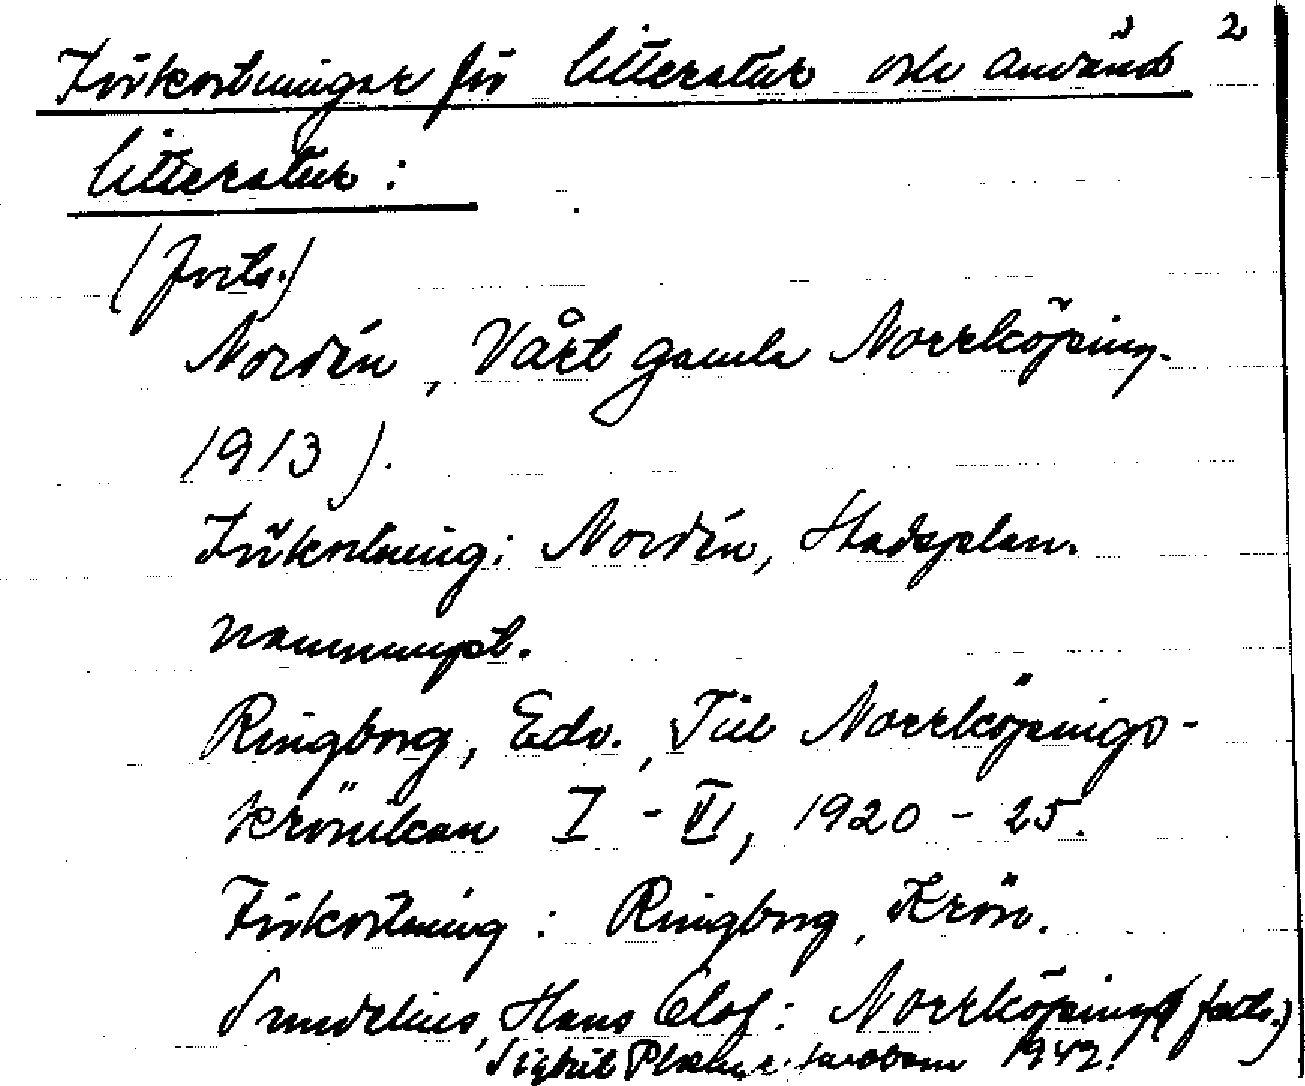 2
Förkortningar för litteratur och använd
litteratur :
(forts.)
Nordén, Vårt gamla Norrköping.
1913).
Förkortning: Nordén, Stadsplan.
Ringborg, Edv., Till Norrköpings-
krönikan I - VI, 1920 - 25.
Förkortning : Ringborg, Krön.
Sundelius, Hans Olof: Norrköping (forts.)
Sigrid 1942.